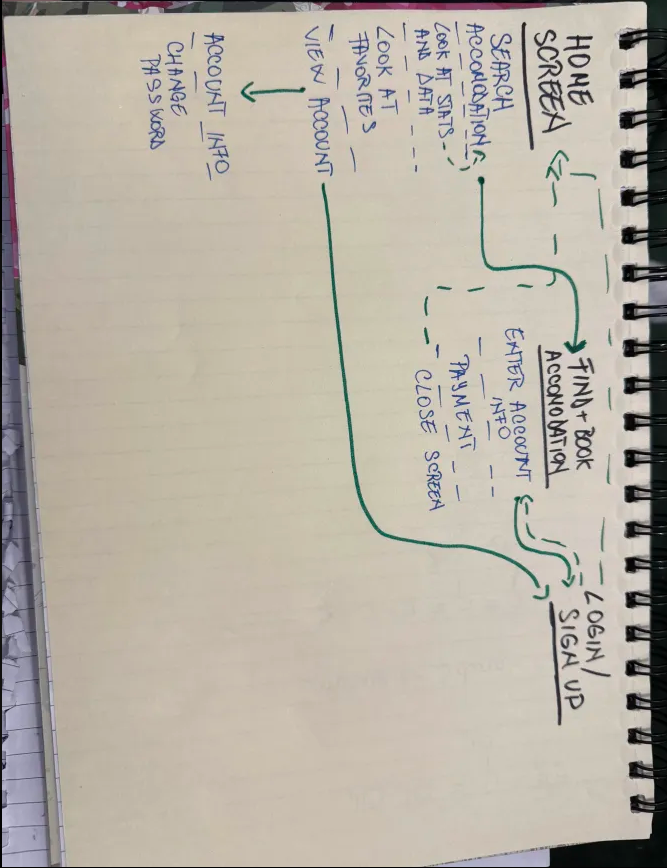 HOME
SCREEN
SEARCH
ACCOMODATION
LOOK AT STATS
AND DATA
LOOK AT
FAVORITES
VIEW ACCOUNT
ACCOUNT INFO
CHANGE
PASSWORD
FIND + BOOK
ACCONODATION
ENTER ACCOUNT
INFO
PAYMENT
CLOSE SCREEN
LOGIN /
SIGN UP